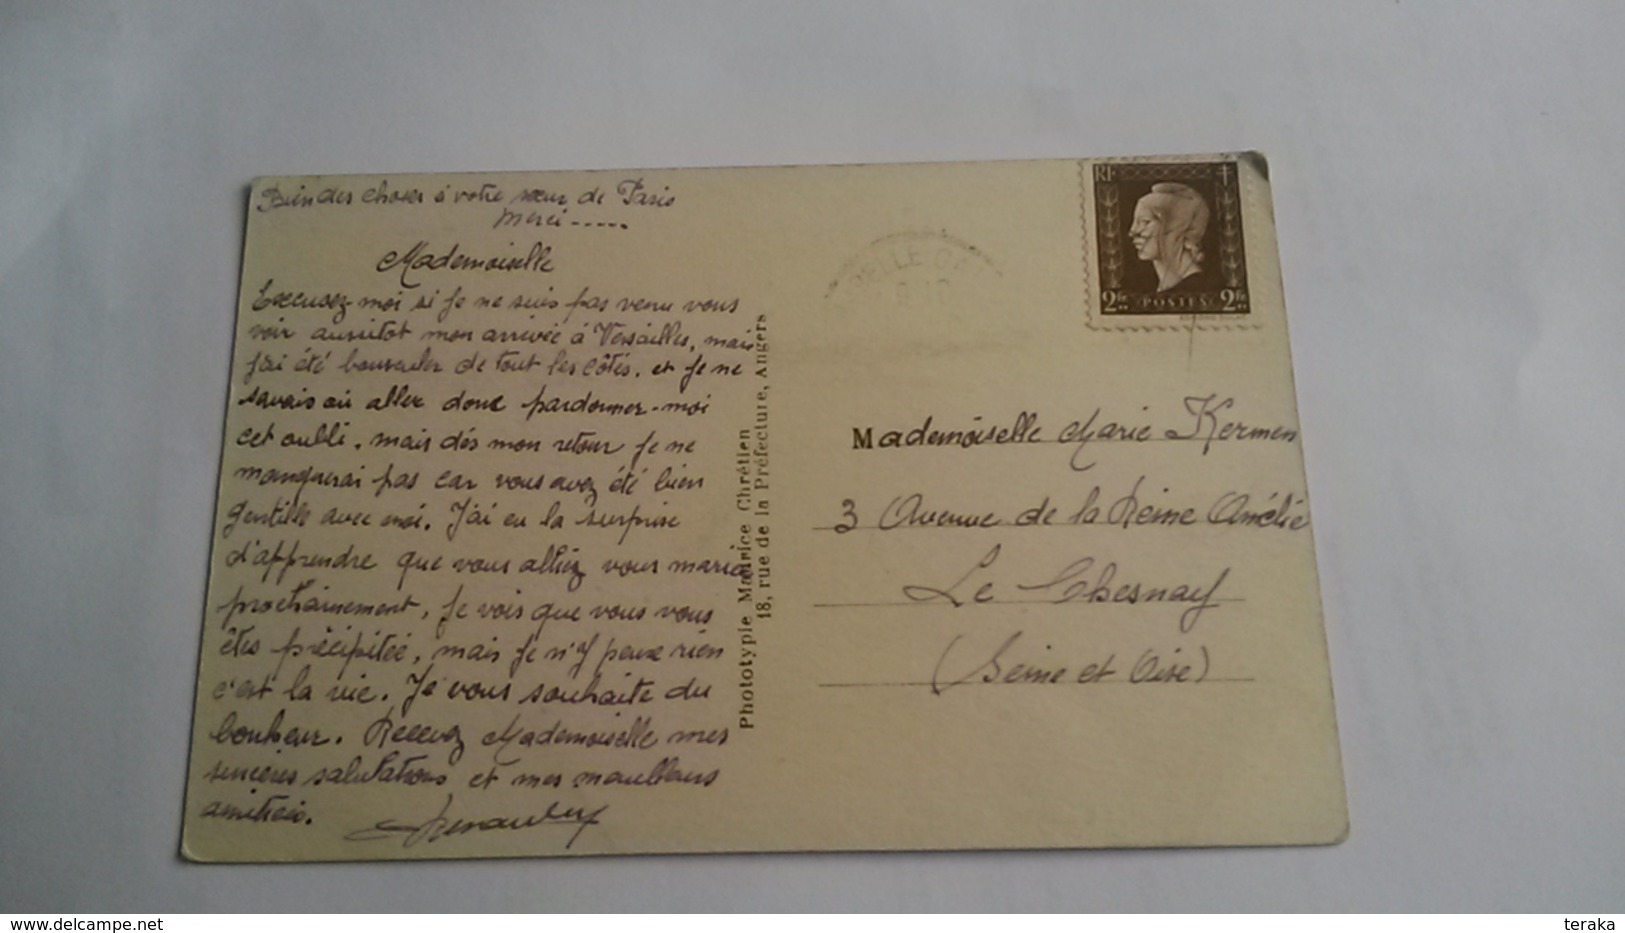 Bien des choses à votre sœur de Paris
Merci -----
Mademoiselle
Excusez-moi si je ne suis pas venu vous
voir aussitot mon arrivée à Versailles, mais
j'ai été bousculer de tout les côtés. et je ne
savais où aller donc pardonner-moi
cet oubli, mais dés mon retour je ne
manquerai pas car vous avez été bien
gentille avec moi. J'ai eu la surprise
d'apprendre que vous alliez vous marié
prochainement, je vois que vous vous
êtes précipitée, mais je n'y peux rien
c'est la vie. Je vous souhaite du
bonheur. Recevez Mademoiselle mes
sincères salutations et mes meilleurs
amitiés.
Phototypie Maurice Chrétien
18, rue de la Préfecture, Angers
RF
2fr POSTES 2fr
Mademoiselle Marie Kermen
3 Avenue de la Reine Amélie
Le Chesnay
(Seine et Oise)
delcampe.net
teraka